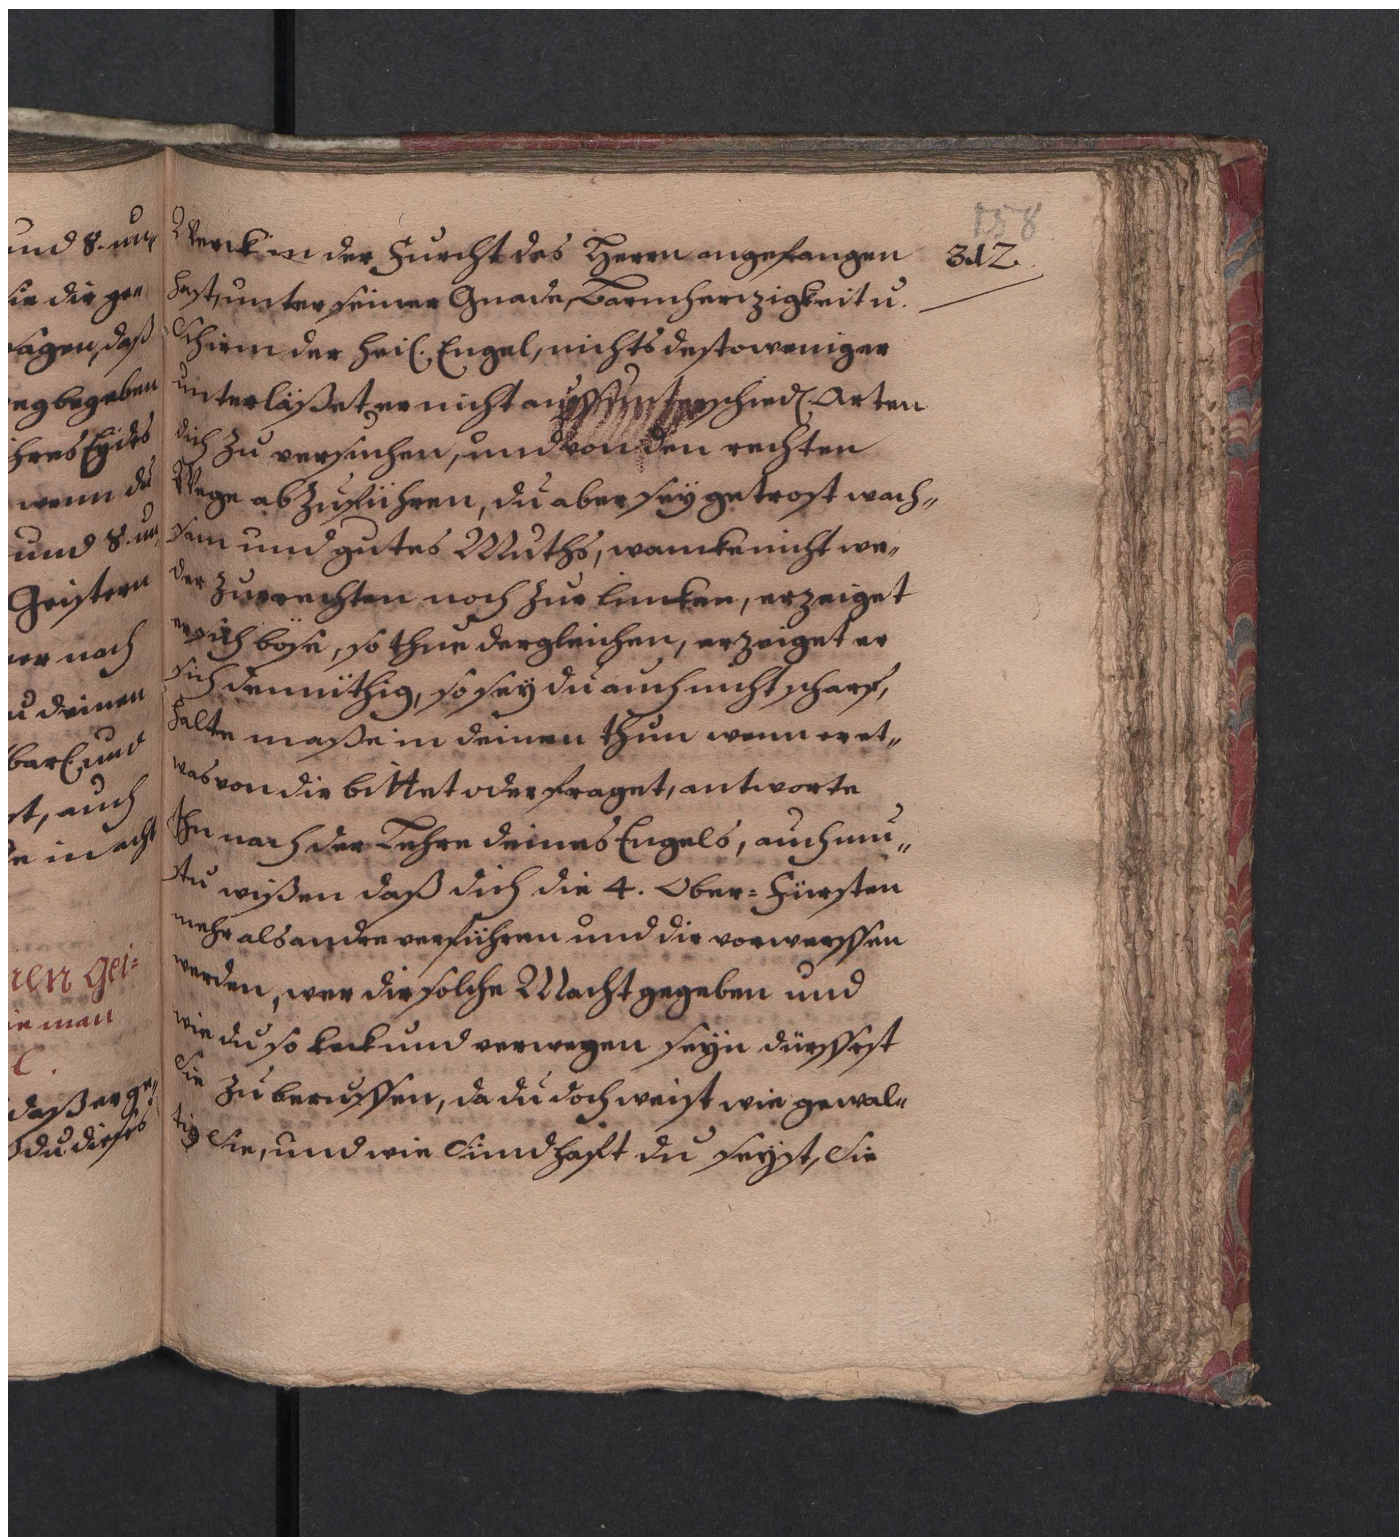 und 8. un„
sie dir ge„
sagen, daß
wegbegeben
ihres Eydes
wenn du
und 8. un„
Geistern
nach
deinen
barl. und
st, auch
in acht
ren Gei=
wie man
daß er ge„
du dieses
158
312.
Werck in der Furcht des Herrn angefangen
hast, unter seiner Gnade, Barmherzigkeit u.
Schirm der heil. Engel, nichts destoweniger
unterläßet er nicht auff unterschiedl. Arten
dich zu versuchen, und von den rechten
Wege abzuführen, du aber sey getrost wach„
sam und gutes Muths, wancke nicht we„
der zur rechten noch zur lincken, erzeiget
er sich böse, so thue dergleichen, erzeiget er
sich demüthig, so sey du auch nicht scharf,
halte maße in deinen thun wenn er et„
was von dir bittet oder fraget, antworte
Ihn nach der Lehre deines Engels, auch mu„
stu wißen daß dich die 4. Ober=Fürsten
mehr als andre verführen und dir vorwerffen
werden, wer dir solche Macht gegeben und
wie du so keck und verwegen seyn dürffest
Sie zu beruffen, da du doch weist wie gewal„
tig Sie, und wie Sündhaft du seyst, Sie